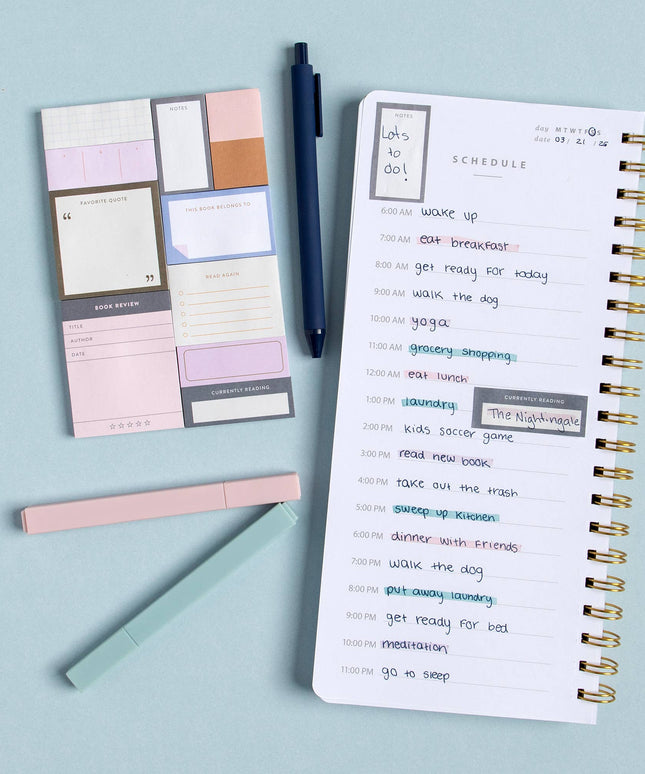 NOTES
FAVORITE QUOTE
“
”
THIS BOOK BELONGS TO
READ AGAIN
BOOK REVIEW
TITLE
AUTHOR
DATE
CURRENTLY READING
NOTES
Lots
to
do!
day M T W T F S S
date 03 / 21 / 25
SCHEDULE
6:00 AM wake up
7:00 AM eat breakfast
8:00 AM get ready for today
9:00 AM walk the dog
10:00 AM yoga
11:00 AM grocery shopping
12:00 AM eat lunch
1:00 PM laundry
CURRENTLY READING
The Nightingale
2:00 PM kids soccer game
3:00 PM read new book
4:00 PM take out the trash
5:00 PM sweep up kitchen
6:00 PM dinner with friends
7:00 PM walk the dog
8:00 PM put away laundry
9:00 PM get ready for bed
10:00 PM meditation
11:00 PM go to sleep